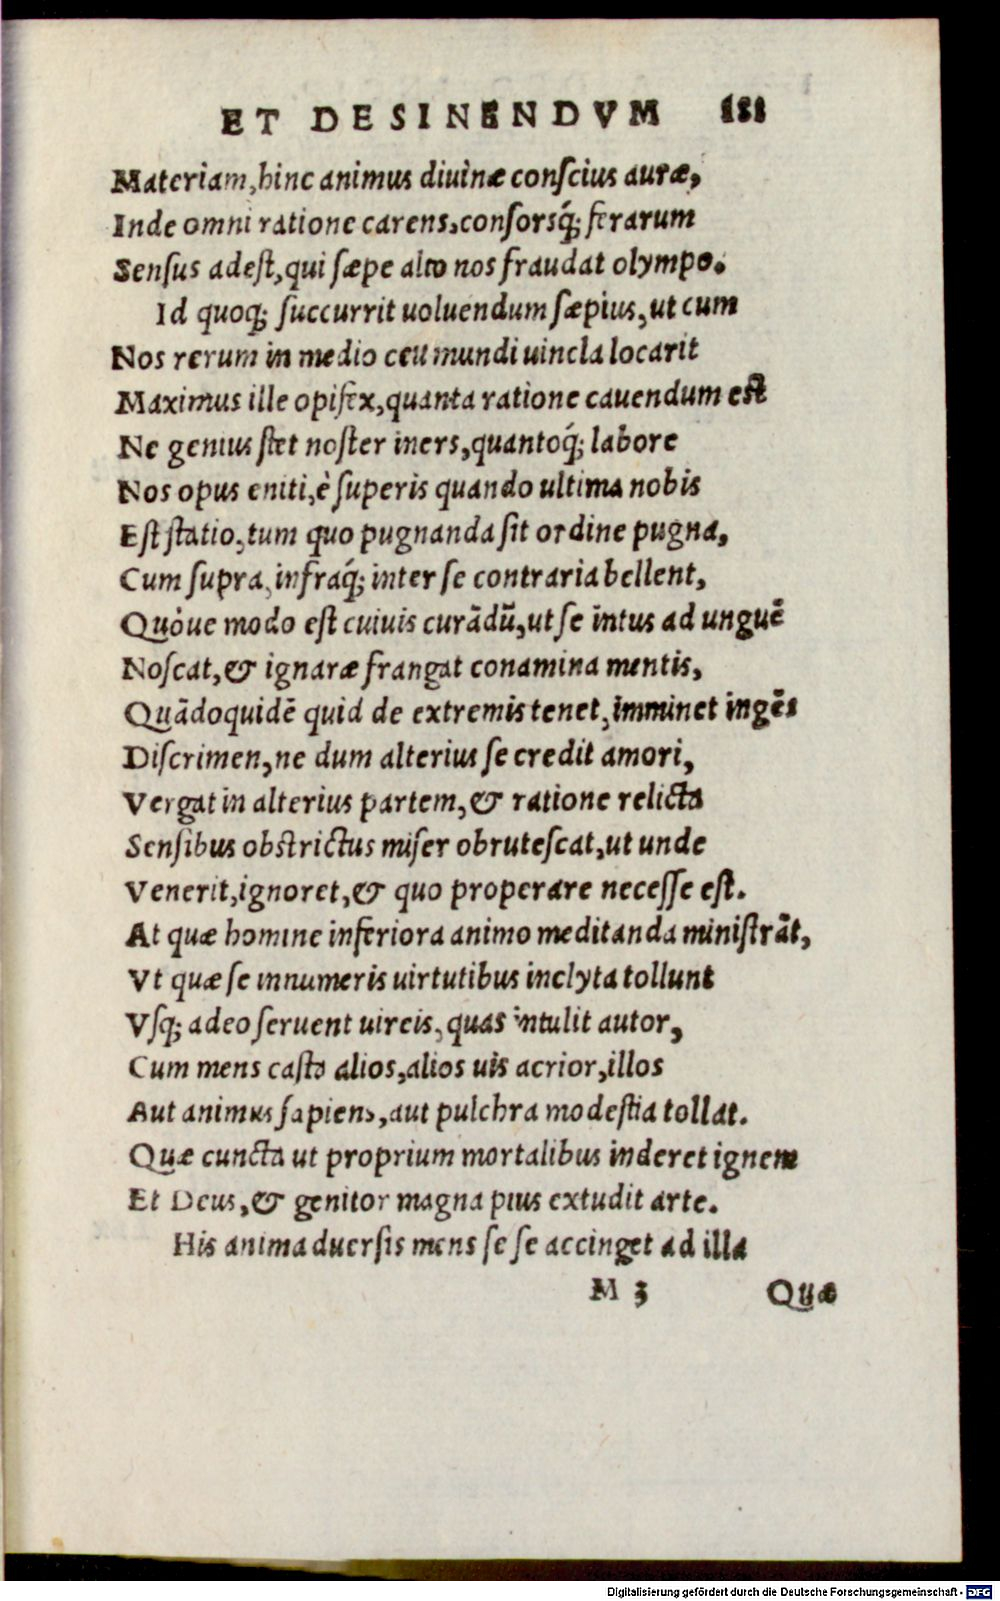 ET DESINENDVM 181
Materiam, hinc animus diuinæ conſcius auræ,
Inde omni ratione carens, conſorsq́; ferarum
Senſus adeſt, qui ſæpe alto nos fraudat olympo.
Id quoq; ſuccurrit uoluendum ſæpius, ut cum
Nos rerum in medio ceu mundi uincla locarit
Maximus ille opifex, quanta ratione cauendum eſt
Ne genius ſtet noſter iners, quantoq́; labore
Nos opus eniti, è ſuperis quando ultima nobis
Eſt ſtatio, tum quo pugnanda ſit ordine pugna,
Cum ſupra, infraq́; inter ſe contraria bellent,
Quòue modo eſt cuiuis curādū, ut ſe intus ad unguē
Noſcat, & ignaræ frangat conamina mentis,
Quādoquidē quid de extremis tenet, imminet ingēs
Diſcrimen, ne dum alterius ſe credit amori,
Vergat in alterius partem, & ratione relicta
Senſibus obſtrictus miſer obruteſcat, ut unde
Venerit, ignoret, & quo properare neceſſe eſt.
At quæ homine inferiora animo meditanda miniſtrāt,
Vt quæ ſe innumeris uirtutibus inclyta tollunt
Vſq; adeo ſeruent uireis, quas intulit autor,
Cum mens caſta alios, alios uis acrior, illos
Aut animus ſapiens, aut pulchra modeſtia tollat.
Quæ cuncta ut proprium mortalibus inderet ignem
Et Deus, & genitor magna pius extudit arte.
His animaduerſis mens ſe ſe accinget ad illa
M 3 Quæ
Digitalisierung gefördert durch die Deutsche Forschungsgemeinschaft - DFG